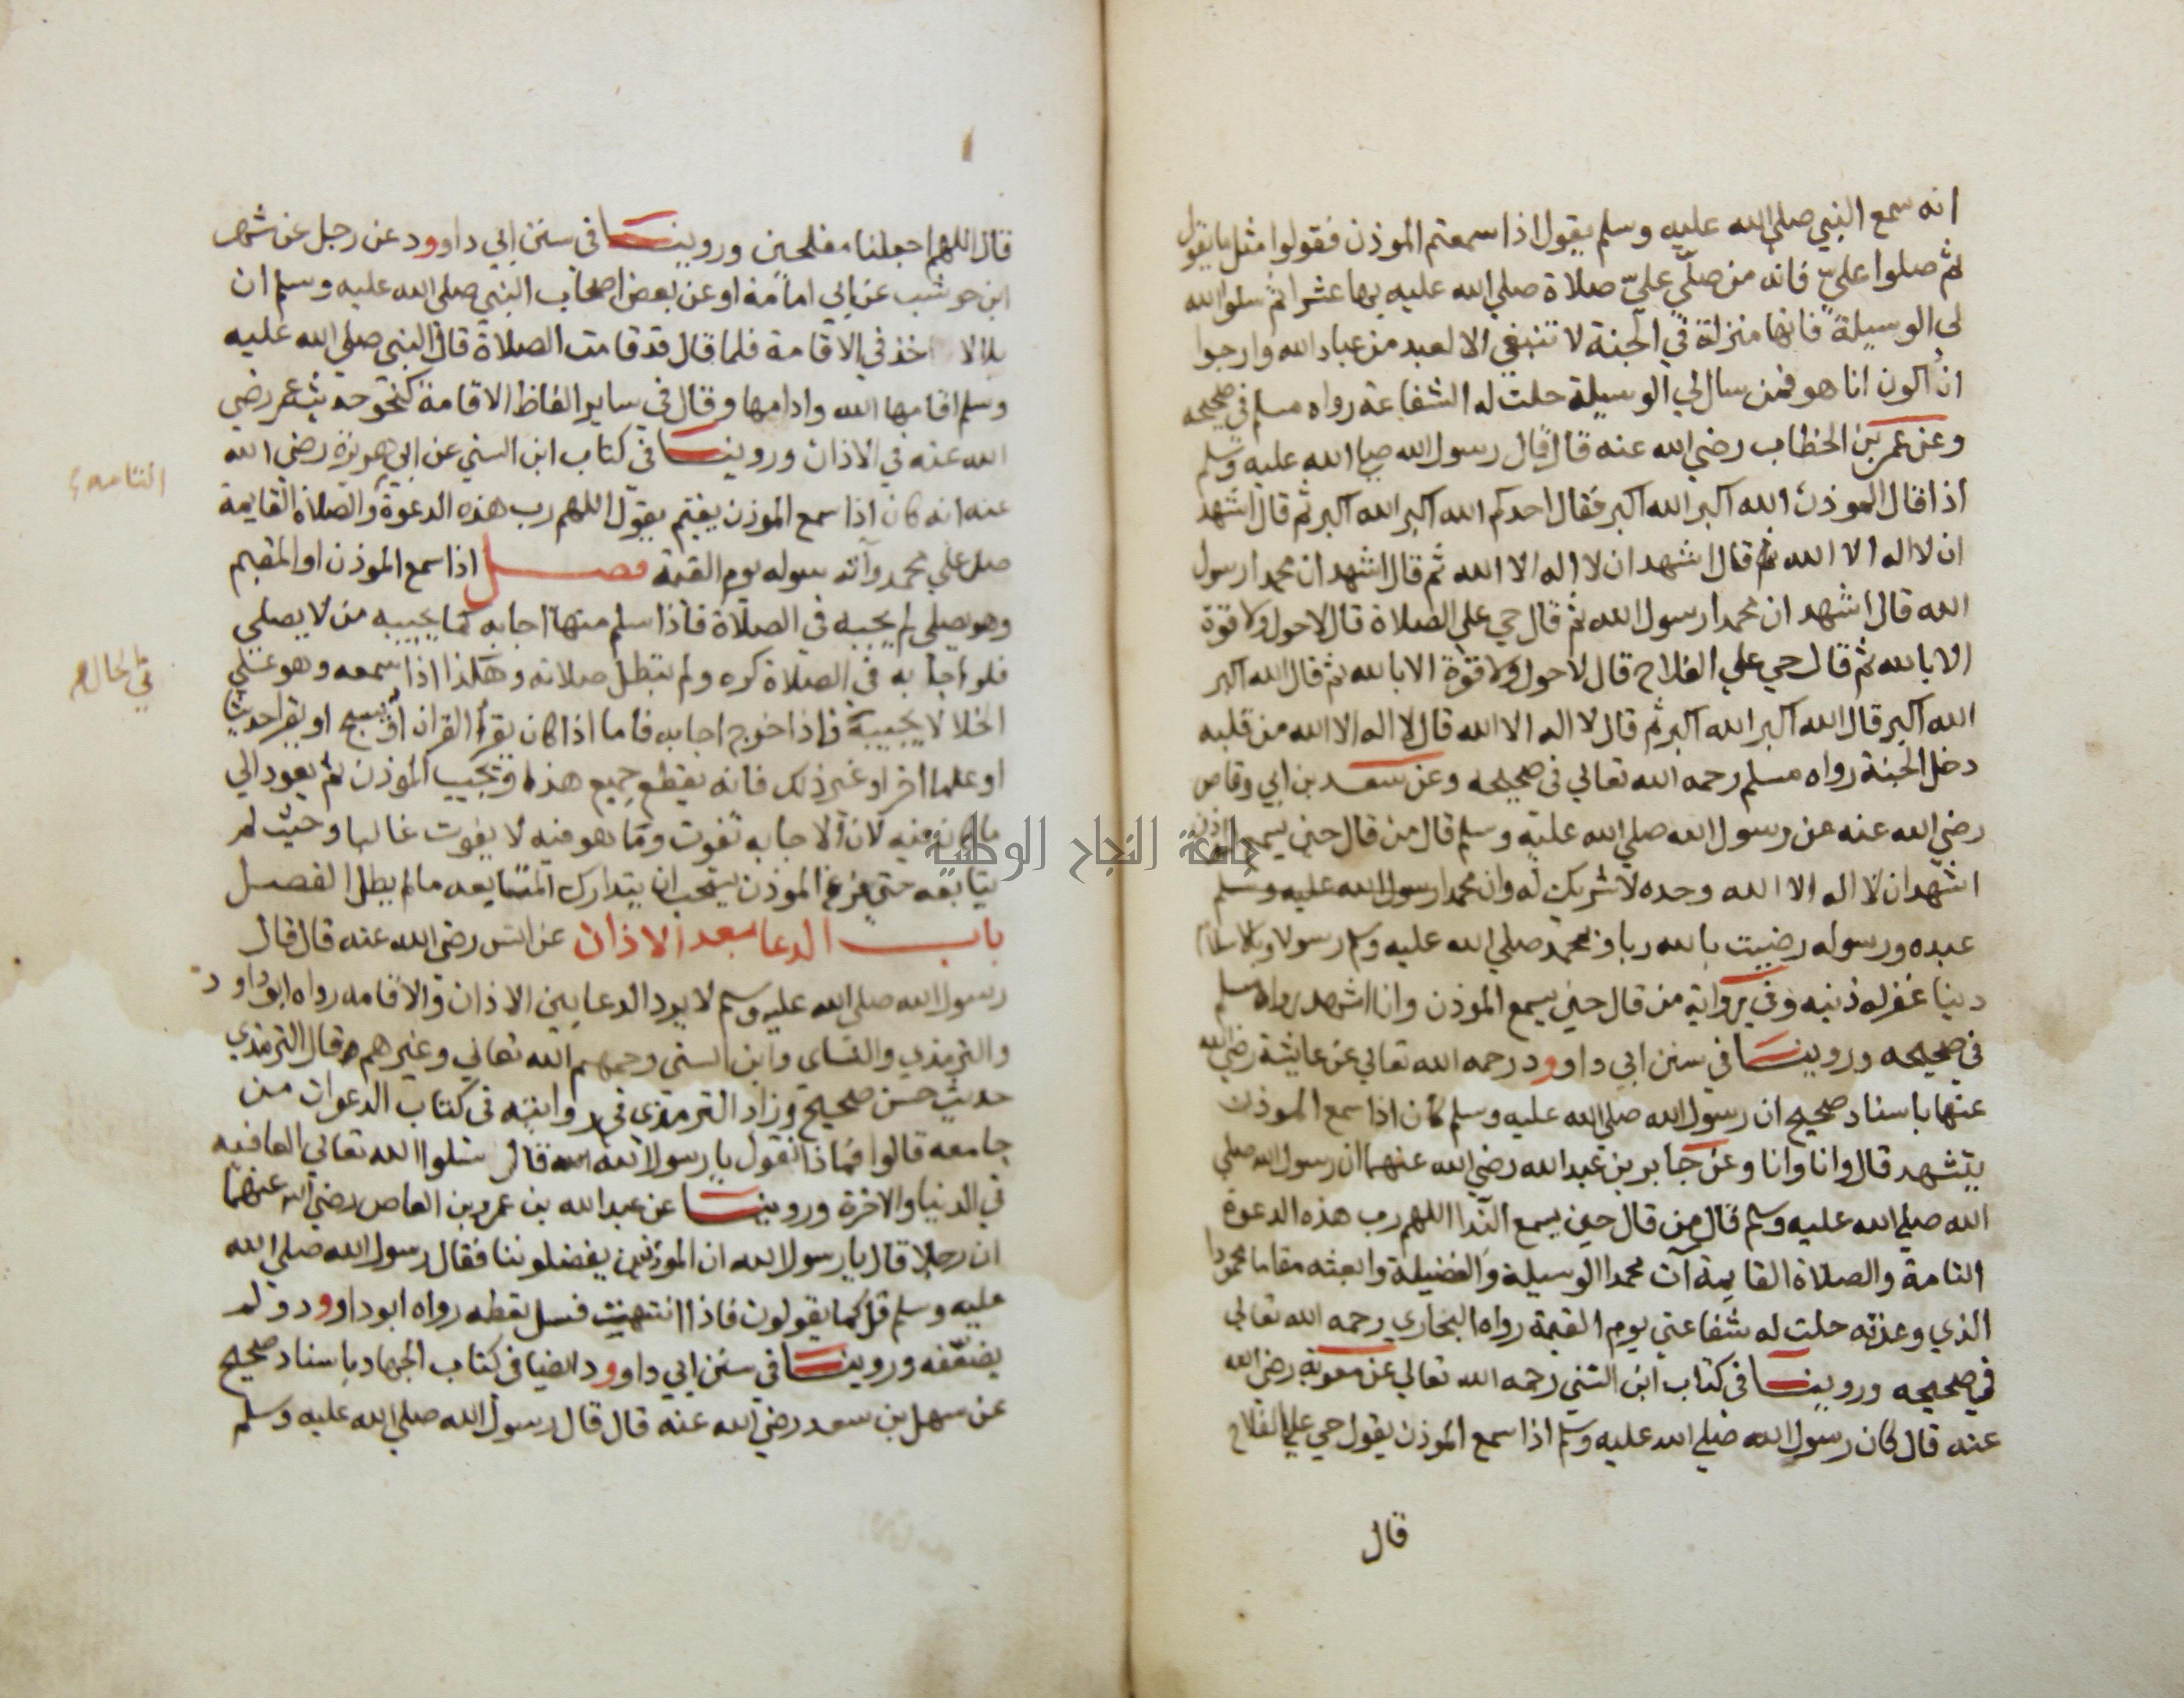 انه سمع النبي صلي الله عليه وسلم يقول اذا سمعتم الموذن فقولوا مثل ما يقول
ثم صلوا عليّ فانه من صلّي عليّ صلاة صلي الله عليه بها عشرا ثم سلوا الله
لي الوسيلة فانها منزلة في الجنة لا تنبغي الا لعبد من عباد الله وارجوا
ان اكون انا هو فمن سال لي الوسيلة حلت له الشفاعة رواه مسلم في صحيحه
وعن عمر بن الخطاب رضي الله عنه قال قال رسول الله صلي الله عليه وسلم
اذا قال الموذن الله اكبر الله اكبر فقال احدكم الله اكبر الله اكبر ثم قال اشهد
ان لا اله الا الله ثم قال اشهد ان لا اله الا الله ثم قال اشهد ان محمدا رسول
الله قال اشهد ان محمدا رسول الله ثم قال حي علي الصلاة قال لا حول ولا قوة
الا بالله ثم قال حي علي الفلاح قال لا حول ولا قوة الا بالله ثم قال الله اكبر
الله اكبر قال الله اكبر الله اكبر ثم قال لا اله الا الله قال لا اله الا الله من قلبه
دخل الجنة رواه مسلم رحمه الله تعالي في صحيحه وعن سعد بن ابي وقاص
رضي الله عنه عن رسول الله صلي الله عليه وسلم قال من قال حين يسمع الموذن
اشهد ان لا اله الا الله وحده لا شريك له وان محمدا رسول الله عليه وسلم
عبده ورسوله رضيت بالله ربا وبمحمد صلي الله عليه وسلم رسولا وبالاسلام
دينا غفر له ذنبه وفي رواية من قال حين يسمع الموذن وانا اشهد رواه مسلم
في صحيحه وروينا في سنن ابي داوود رحمه الله تعالي عن عايشة رضي الله
عنها باسناد صحيح ان رسول الله صلي الله عليه وسلم كان اذا سمع الموذن
يتشهد قال وانا وانا وعن جابر بن عبد الله رضي الله عنهما ان رسول الله صلي
الله صلي الله عليه وسلم قال من قال حين يسمع الندا اللهم رب هذه الدعوة
التامة والصلاة القايمة آت محمدا الوسيلة والفضيلة وابعثه مقاما محمودا
الذي وعدته حلت له شفاعتي يوم القيمة رواه البخاري رحمه الله تعالي
في صحيحه وروينا في كتاب ابن السني رحمه الله تعالي عن معوية رضي الله
عنه قال كان رسول الله صلي الله عليه وسلم اذا سمع الموذن يقول حي علي الفلاح
قال
قال اللهم اجعلنا مفلحين وروينا في سنن ابي داوود عن رجل عن شهر
ابن حوشب عن ابي امامة او عن بعض اصحاب النبي صلي الله عليه وسلم ان
بلالا اخذ في الاقامة فلما قال قد قامت الصلاة قال النبي صلي الله عليه
وسلم اقامها الله وادامها وقال في ساير الفاظ الاقامة كنحو حديث عمر رضي
الله عنه في الاذان وروينا في كتاب ابن السني عن ابي هريرة رضي الله
عنه انه كان اذا سمع الموذن يقيم يقول اللهم رب هذه الدعوة والصلاة القايمة
التامه
صل علي محمد وآته سوله يوم القيمة فصل اذا سمع الموذن او المقيم
وهو يصلي لم يجبه في الصلاة فاذا سلم منها اجابه كما يجيبه من لا يصلي
فلو اجابه في الصلاة كره ولم تبطل صلاته وهكذا اذا سمعه وهو علي
في الحال
الخلا لا يجيبه فاذا خرج اجابه فاما اذا كان يقرأ القران او يسبح او يقرا حديثا
او علما اخر او غير ذلك فانه يقطع جميع هذا ويجيب الموذن ثم يعود الي
ما كان فيه لان الاجابه تفوت وما هو فيه لا يفوت غالبا وحيث لم
يتابعه حتي فرغ الموذن يستحب ان يتدارك المتابعه ما لم يطل الفصل
باب الدعا بعد الاذان عن انس رضي الله عنه قال قال
رسول الله صلي الله عليه وسلم لا يرد الدعا بين الاذان والاقامه رواه ابو داود
والترمذي والنساى وابن السني رحمهم الله تعالي وغيرهم قال الترمذي
حديث حسن صحيح وزاد الترمذى في روايته في كتاب الدعوات من
جامعه قالوا فماذا نقول يا رسول الله قال سلوا الله تعالي العافيه
في الدنيا والاخرة وروينا عن عبد الله بن عمرو بن العاص رضي الله عنهما
ان رجلا قال يا رسول الله ان الموذنين يفضلوننا فقال رسول الله صلي الله
عليه وسلم قل كما يقولون فاذا انتهيت فسل تعطه رواه ابو داوود ولم
يضعفه وروينا في سنن ابي داوود ايضا في كتاب الجهاد باسناد صحيح
عن سهل بن سعد رضي الله عنه قال قال رسول الله صلي الله عليه وسلم
جامعة النجاح الوطنية